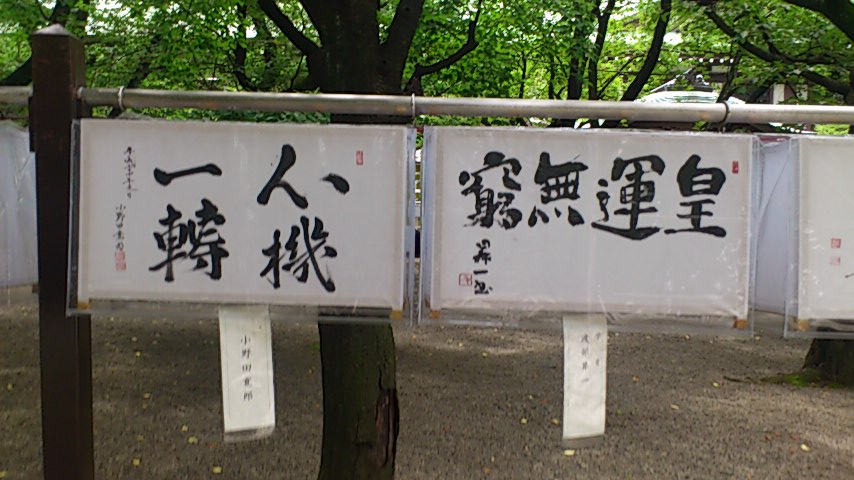 皇運無窮
昇一書
渡部昇一
心機
一轉
小野田寛郎
小野田寛郎